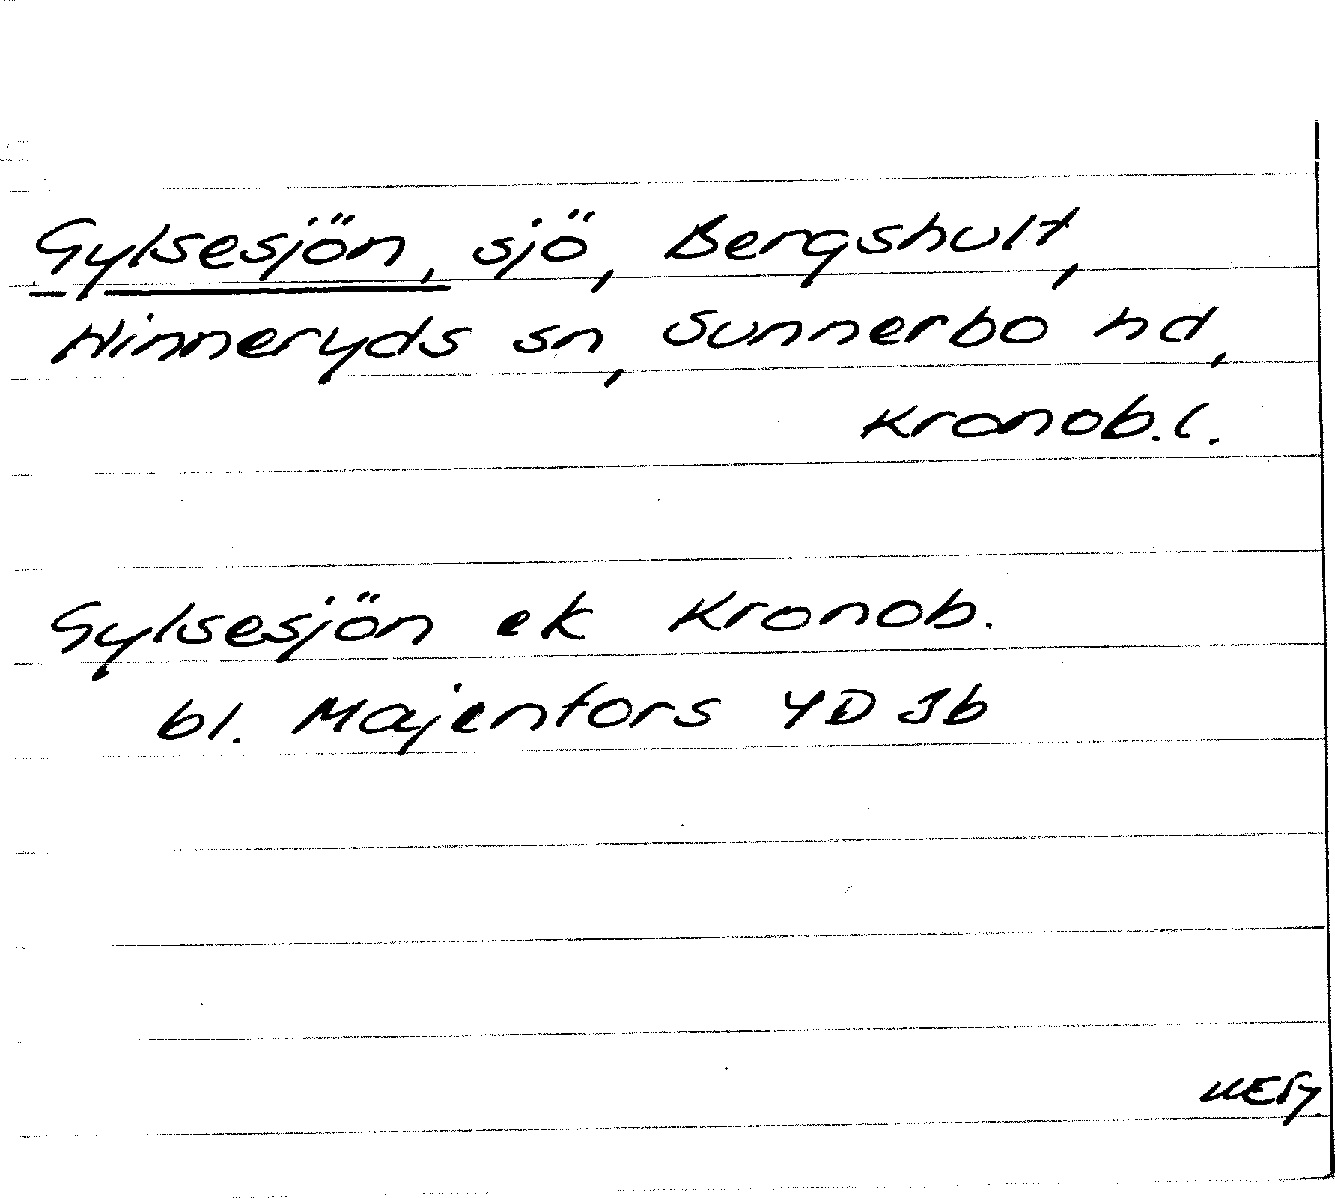 Gylsesjön, sjö, Bergshult,
Hinneryds sn, Sunnerbo hd,
Kronob. l.
Gylsesjön ek Kronob.
bl. Majenfors 4D 3b